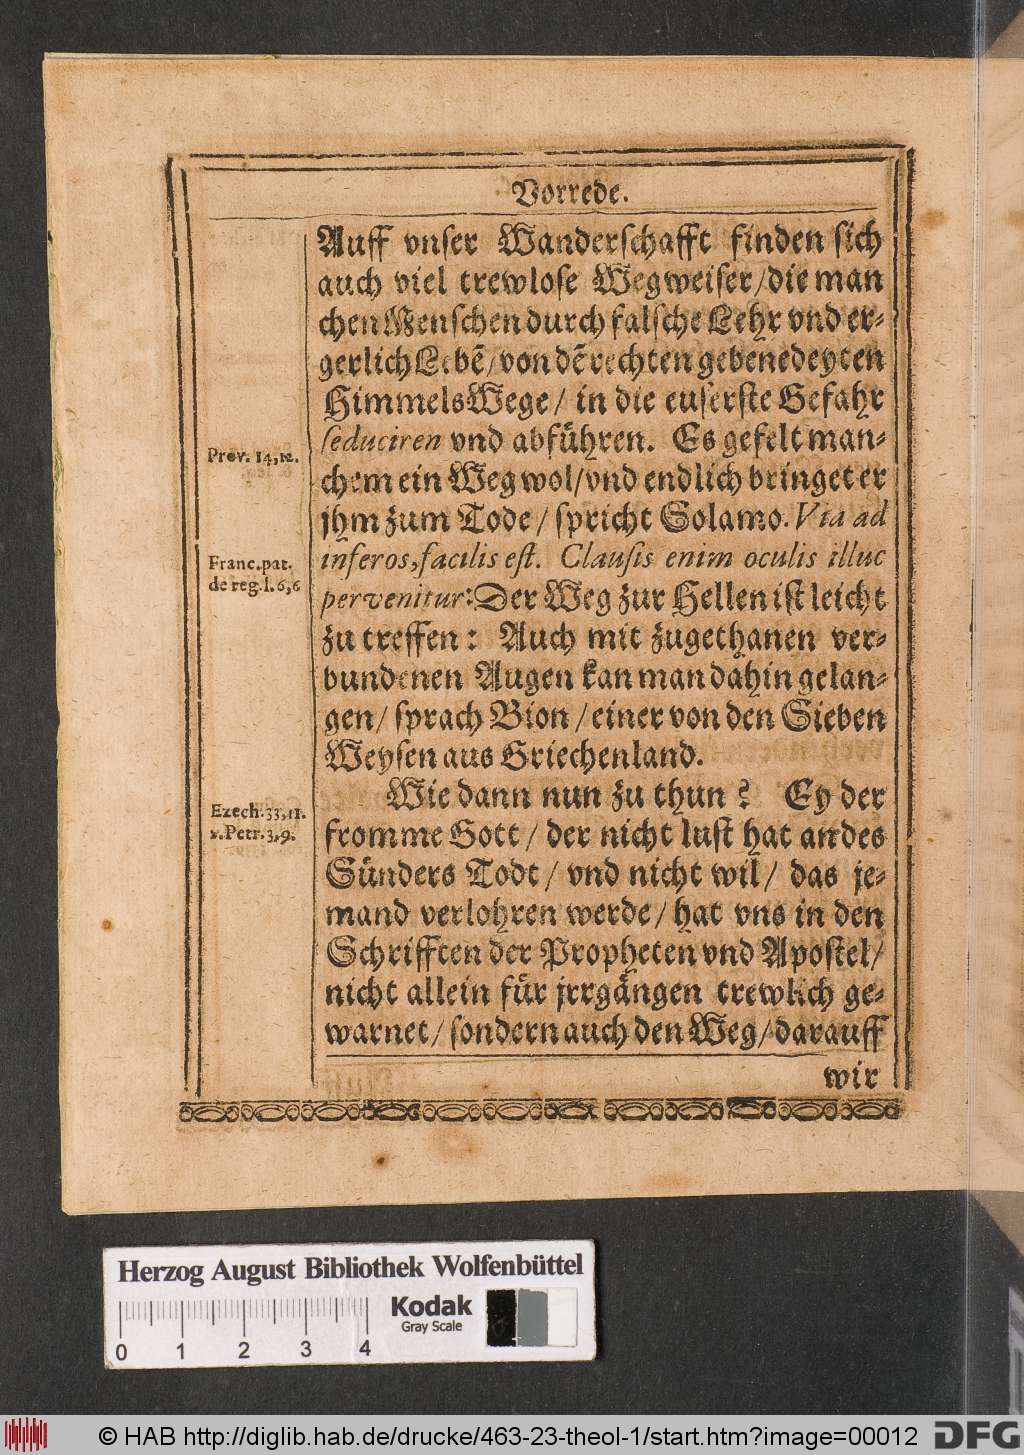 Vorrede.
Auff vnser Wanderschafft finden sich
auch viel trewlose Wegweiser/die man
chen Menschen durch falsche Lehr vnd er-
gerlich Lebē/von dē rechten gebenedeyten
HimmelsWege/ in die euserste Gefahr
seduciren vnd abführen. Es gefelt man-
Prov. 14,12.
chem ein Weg wol/vnd endlich bringet er
jhm zum Tode/ spricht Solamo. Via ad
inferos, facilis est. Clausis enim oculis illuc
Franc.pat.
de reg.l.6,6
pervenitur: Der Weg zur Hellen ist leicht
zu treffen: Auch mit zugethanen ver-
bundenen Augen kan man dahin gelan-
gen/ sprach Bion/einer von den Sieben
Weysen aus Griechenland.
Wie dann nun zu thun? Ey der
Ezech.33,11.
2.Petr.3,9.
fromme Gott/ der nicht lust hat an des
Sünders Todt/ vnd nicht wil/ das je-
mand verlohren werde/ hat vns in den
Schrifften der Propheten vnd Apostel/
nicht allein für jrrgängen trewlich ge-
warnet/ sondern auch den Weg/darauff
wir
Herzog August Bibliothek Wolfenbüttel
Kodak
Gray Scale
0 1 2 3 4
© HAB http://diglib.hab.de/drucke/463-23-theol-1/start.htm?image=00012
DFG